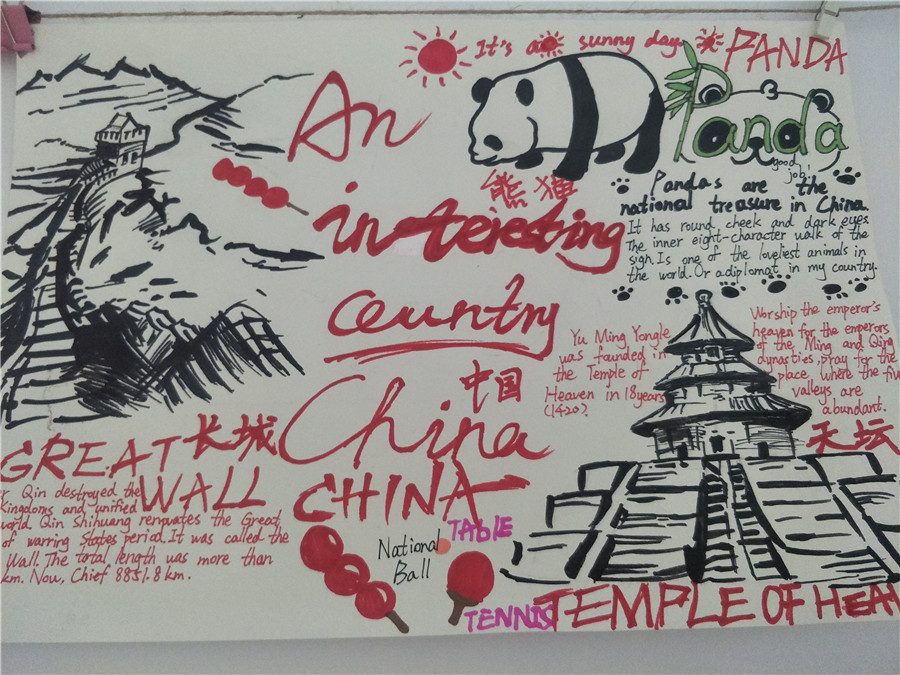 It's a sunny day.
PANDA
Panda
good
job!
An
interesting
country
中国
China
CHINA
熊猫
Pandas are the
national treasure in China.
It has round cheek and dark eyes.
The inner eight-character walk of the
sigh. Is one of the loveliest animals in
the world. Or a diplomat in my country.
Yu Ming Yongle
was founded in
the Temple of
Heaven in 18 years
(1420?
Worship the emperor's
heaven for the emperors
of the Ming and Qing
dynasties, pray for the
place where the fiv
valleys are
abundant.
天坛
TEMPLE OF HEAV
GREAT 长城
WALL
r Qin destroyed the
kingdoms and unified
world. Qin Shihuang renovates the Great
of warring States period. It was called the
Wall. The total length was more than
km. Now, Chief 8851.8 km.
National
Ball
TABLE
TENNIS